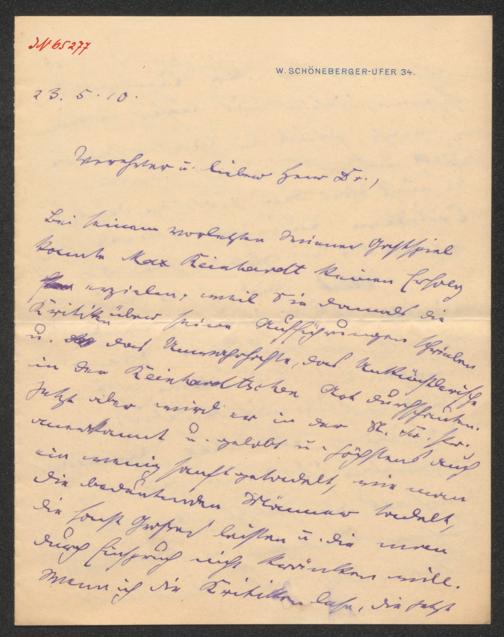 IN 65277
W. SCHÖNEBERGER-UFER 34.
23.5.10.
Verehrter u. lieber Herr Dr.,
Bei seinem vorletzten Wiener Gastspiel
konnte Max Reinhardt keinen Erfolg
erzielen, weil Sie damals die
Kritik über seine Aufführungen schrieben
u. das Unwahrhafte, das Unkünstlerische
in der Reinhardtschen Art durchschauten.
Jetzt aber wird er in der N. Fr. Pr.
anerkannt u. gelobt u. höchstens auch
ein wenig sanft getadelt, wie man
die bedeutenden Männer tadelt,
die sonst Großes leisten u. die man
durch Einspruch nicht kränken will.
Wenn ich die Kritiken lese, die jetzt